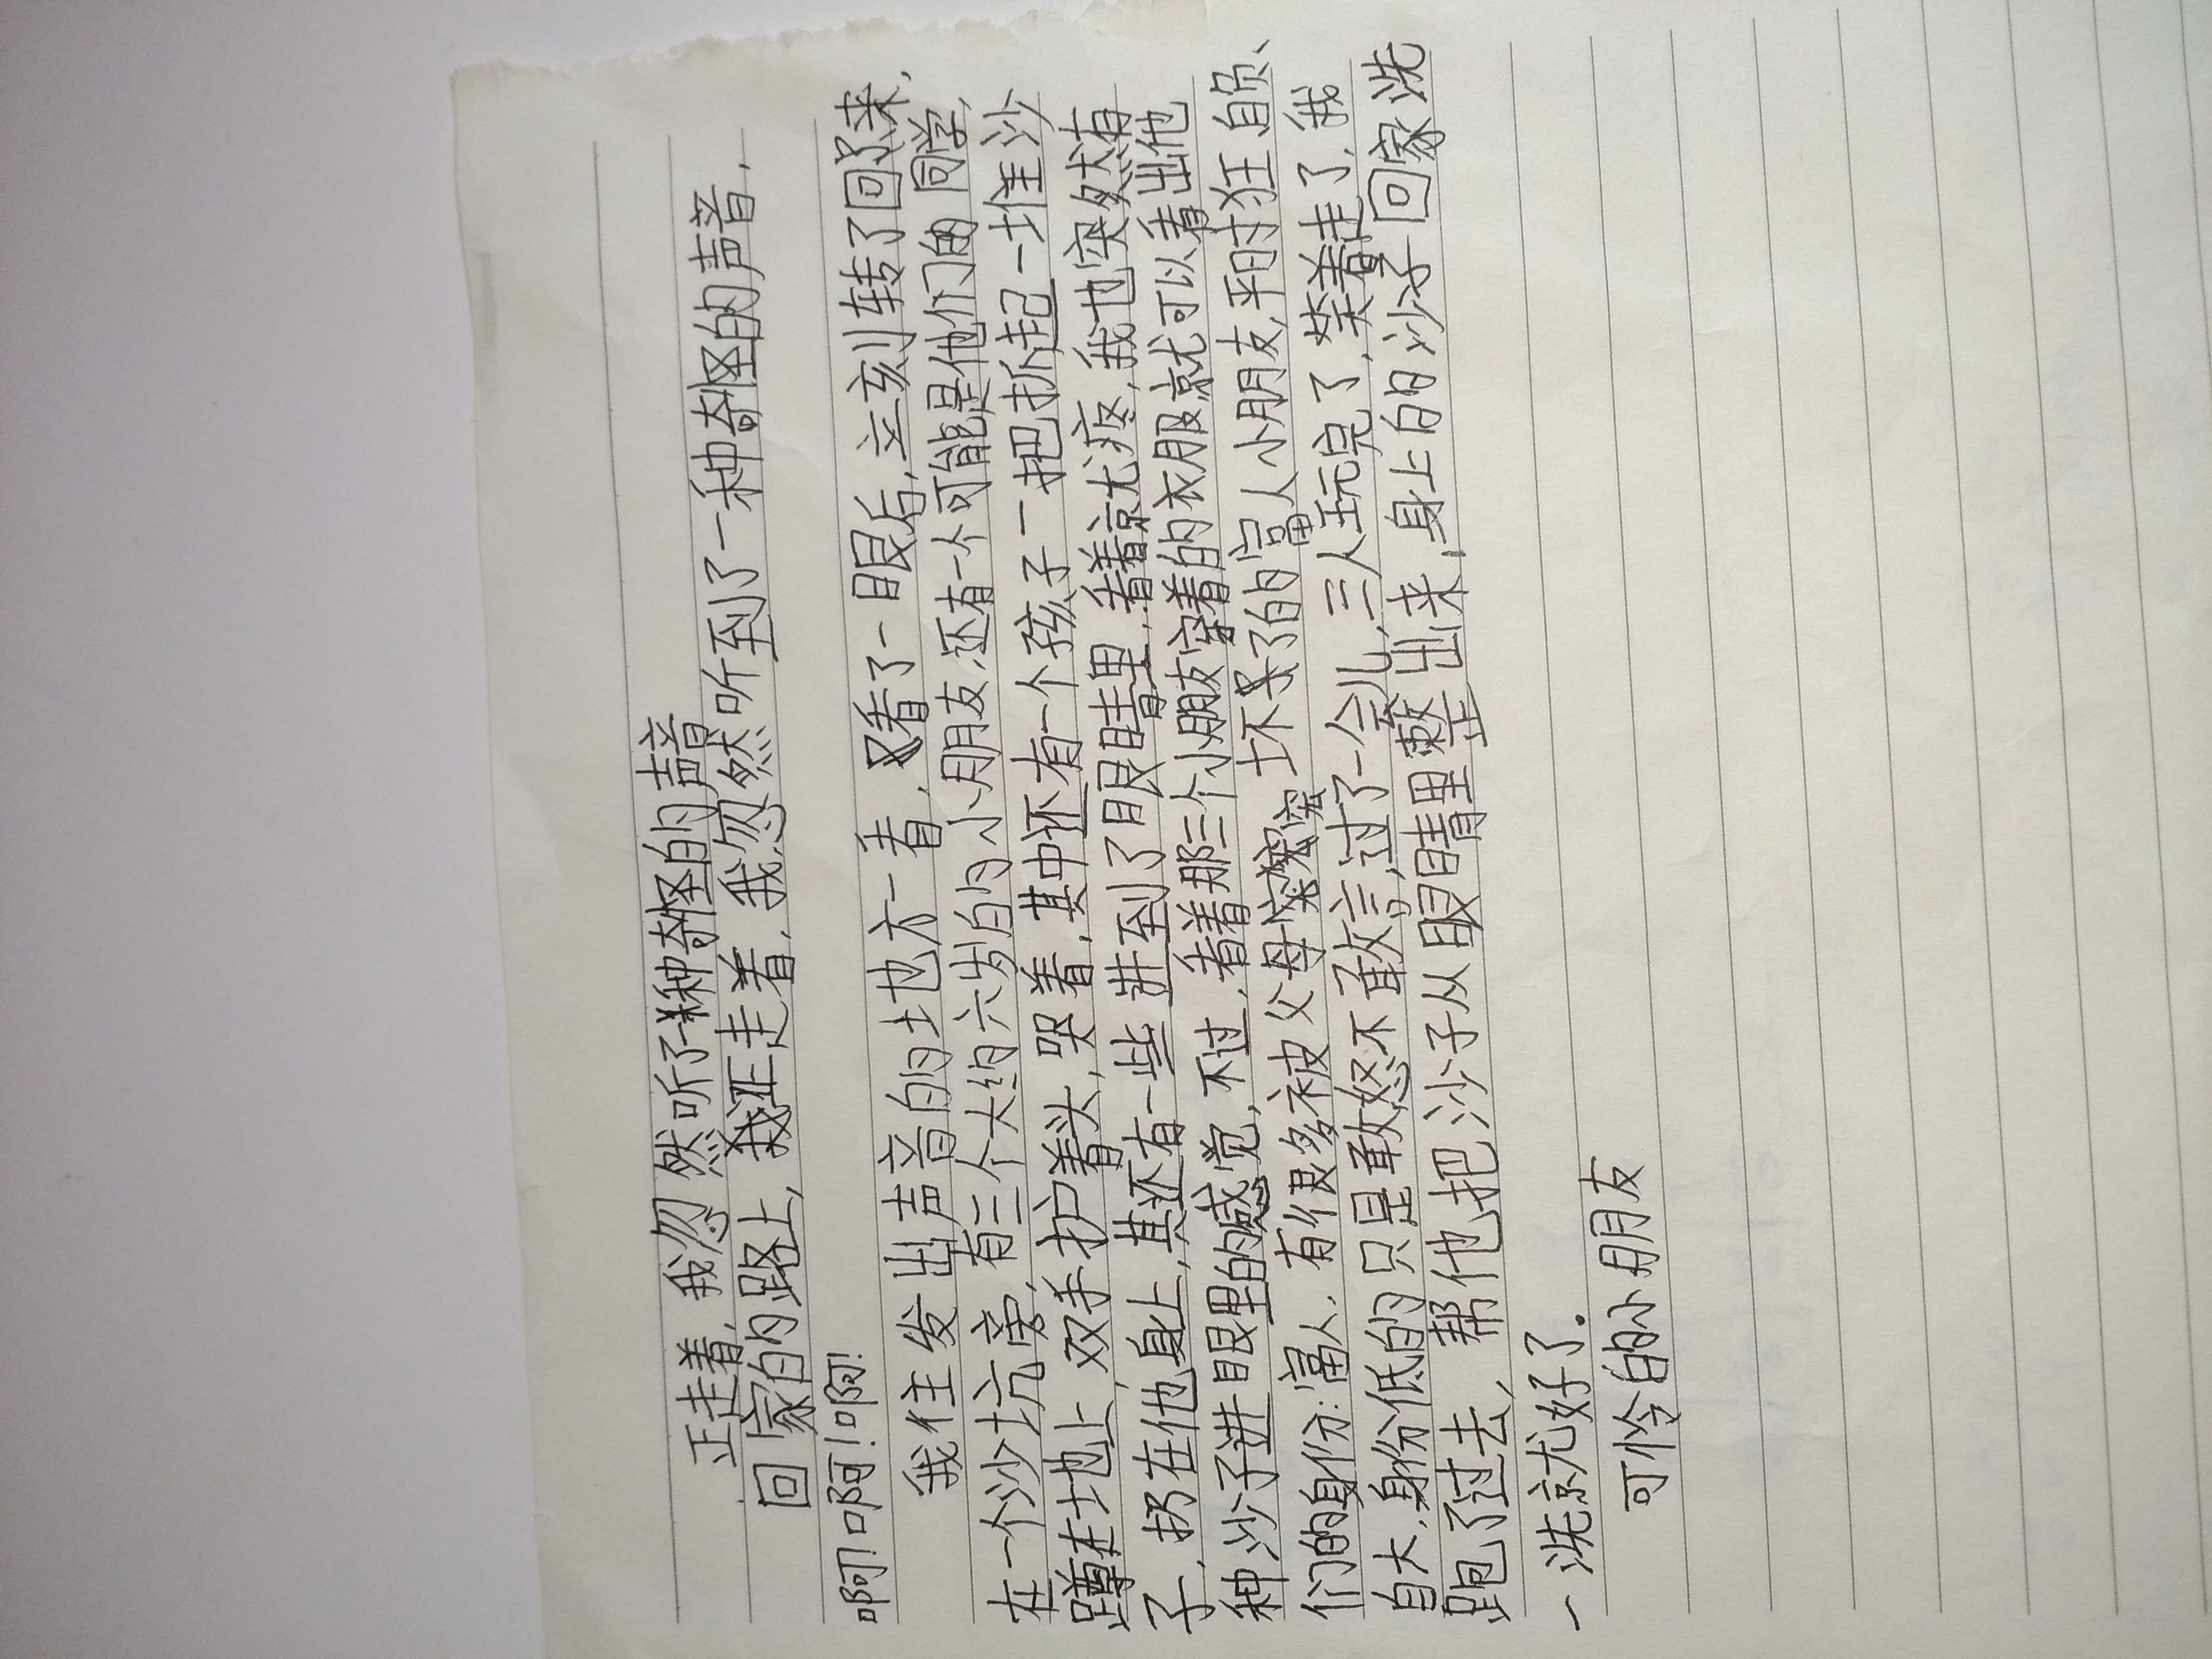 正走着,我忽然听了一种奇怪的声音
回家的路上,我正走着,我忽然听到了一种奇怪的声音.
啊!啊!啊!
我往发出声音的地方一看,又看了一眼后,立刻转了回来,
在一个沙坑旁,有三个大约六岁的小朋友,还有一个可能是他们的同学,
蹲在地上,双手护着头,哭着,其中还有一个孩子一把抓起一堆沙
子,扔在他身上,其还有一些进到了眼睛里,看着就疼,我也突然有
种沙子进眼里的感觉,不过,看着那三个小朋友穿着的衣服就可以看出他
们的身份:富人、有很多被父母宠坏了的富人小朋友,平时狂自负、
自大,身份低的只是敢怒不敢言,过了一会儿,三人玩完了,笑着走了,我
跑了过去、帮他把沙子从眼睛里整出来,身上的沙子回家洗
一洗就好了.
可怜的小朋友